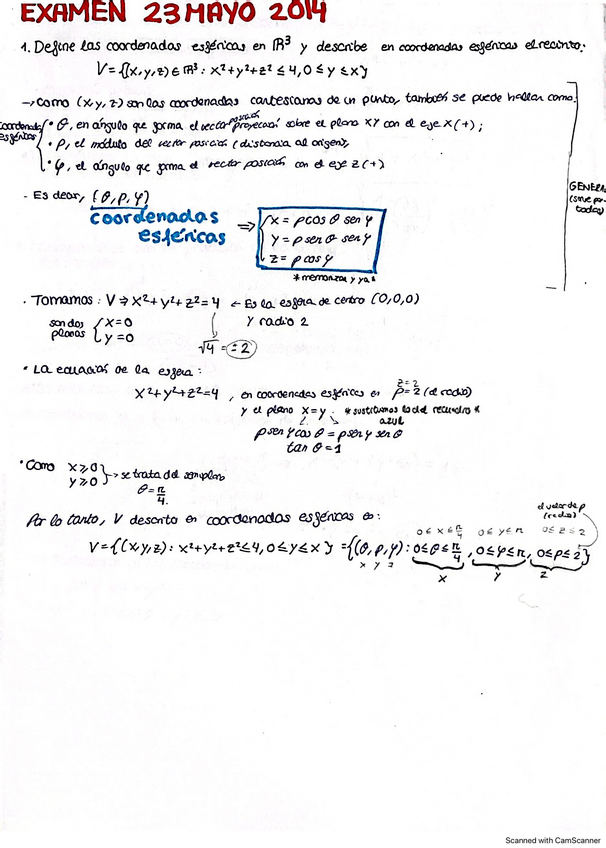 EXAMEN 23 MAYO 2014
1. Define las coordenadas esféricas en ℝ³ y describe en coordenadas esféricas el recinto:
V = {(x,y,z) ∈ ℝ³ : x²+y²+z² ≤ 4, 0 ≤ y ≤ x}
→ Como (x,y,z) son las coordenadas cartesianas de un punto, también se puede hallar como:
coordenadas esféricas
• θ, en ángulo que forma el vector posición proyección sobre el plano XY con el eje X(+);
• ρ, el módulo del vector posición (distancia al origen);
• φ, el ángulo que forma el vector posición con el eje z(+)
GENERAL
(sirve para
todas)
- Es decir, (θ, ρ, φ)
coordenadas
esféricas
⇒ { x = ρ cos θ sen φ
y = ρ sen θ sen φ
z = ρ cos φ
* memorizar y ya *
· Tomamos: V ⇒ x²+y²+z² = 4 ← Es la esfera de centro (0,0,0)
y radio 2
son dos planos { x=0
y=0
√4 = ±2
• La ecuación de la esfera:
x²+y²+z²=4, en coordenadas esféricas es ρ=2 (el radio)
z=2
y el plano x=y. * sustituimos lo del recuadro *
azul
ρ sen φ cos θ = ρ sen φ sen θ
tan θ = 1
• Como x ≥ 0
y ≥ 0 } → se trata del semiplano
θ = π/4.
Por lo tanto, V descrito en coordenadas esféricas es:
el valor de ρ
(radio)
0 ≤ x ≤ π/4 0 ≤ y ≤ π 0 ≤ z ≤ 2
V = {(x,y,z) : x²+y²+z² ≤ 4, 0 ≤ y ≤ x} = {(θ, ρ, φ) : 0 ≤ θ ≤ π/4, 0 ≤ φ ≤ π, 0 ≤ ρ ≤ 2}
x y z
x y z
Scanned with CamScanner